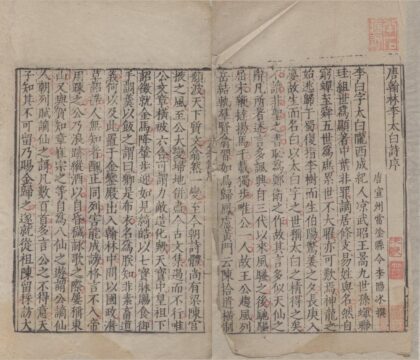 唐翰林李太白詩序
唐宣州當塗縣令李陽冰撰
李白字太白隴西成紀人涼武昭王暠九世孫蟬聯
珪組世爲顯著中葉非罪謫居條支易姓與名然自
窮蟬至舜五世爲庶累世不大曜亦可歎焉神龍之
始逃歸于蜀復指李樹而生伯陽驚姜之夕長庚入
夢故生而名白以太白字之世稱太白之精得之矣
不讀非聖之書恥爲鄭衛之作故其言多似天仙之
辭凡所著述言多諷興自三代以來風騷之後馳驅
屈宋鞭撻揚馬千載獨步唯公一人故王公趨風列
岳結軌羣賢翕習如鳥歸鳳盧黃門云陳拾遺橫制
頹波天下質文翕然一變至今朝詩體尚有梁陳宮
掖之風至公大變掃地併盡今古文集遏而不行唯
公文章橫被六合可謂力敵造化歟天寶中皇祖下
詔徵就金馬降輦步迎如見綺皓以七寶牀賜食御
手調羹以飯之謂曰卿是布衣名爲朕知非素蓄道
義何以及此置于金鑾殿出入翰林中問以國政潛
草詔誥人無知者醜正同列害能成謗格言不入帝
用疎之公乃浪跡縱酒以自昏穢詠歌之際屢稱東
山又與賀知章崔宗之等自爲八仙之遊謂公謫仙
人朝列賦謫仙之歌凡數百首多言公之不得意天
子知其不可留乃賜金歸之遂就從祖陳留採訪大